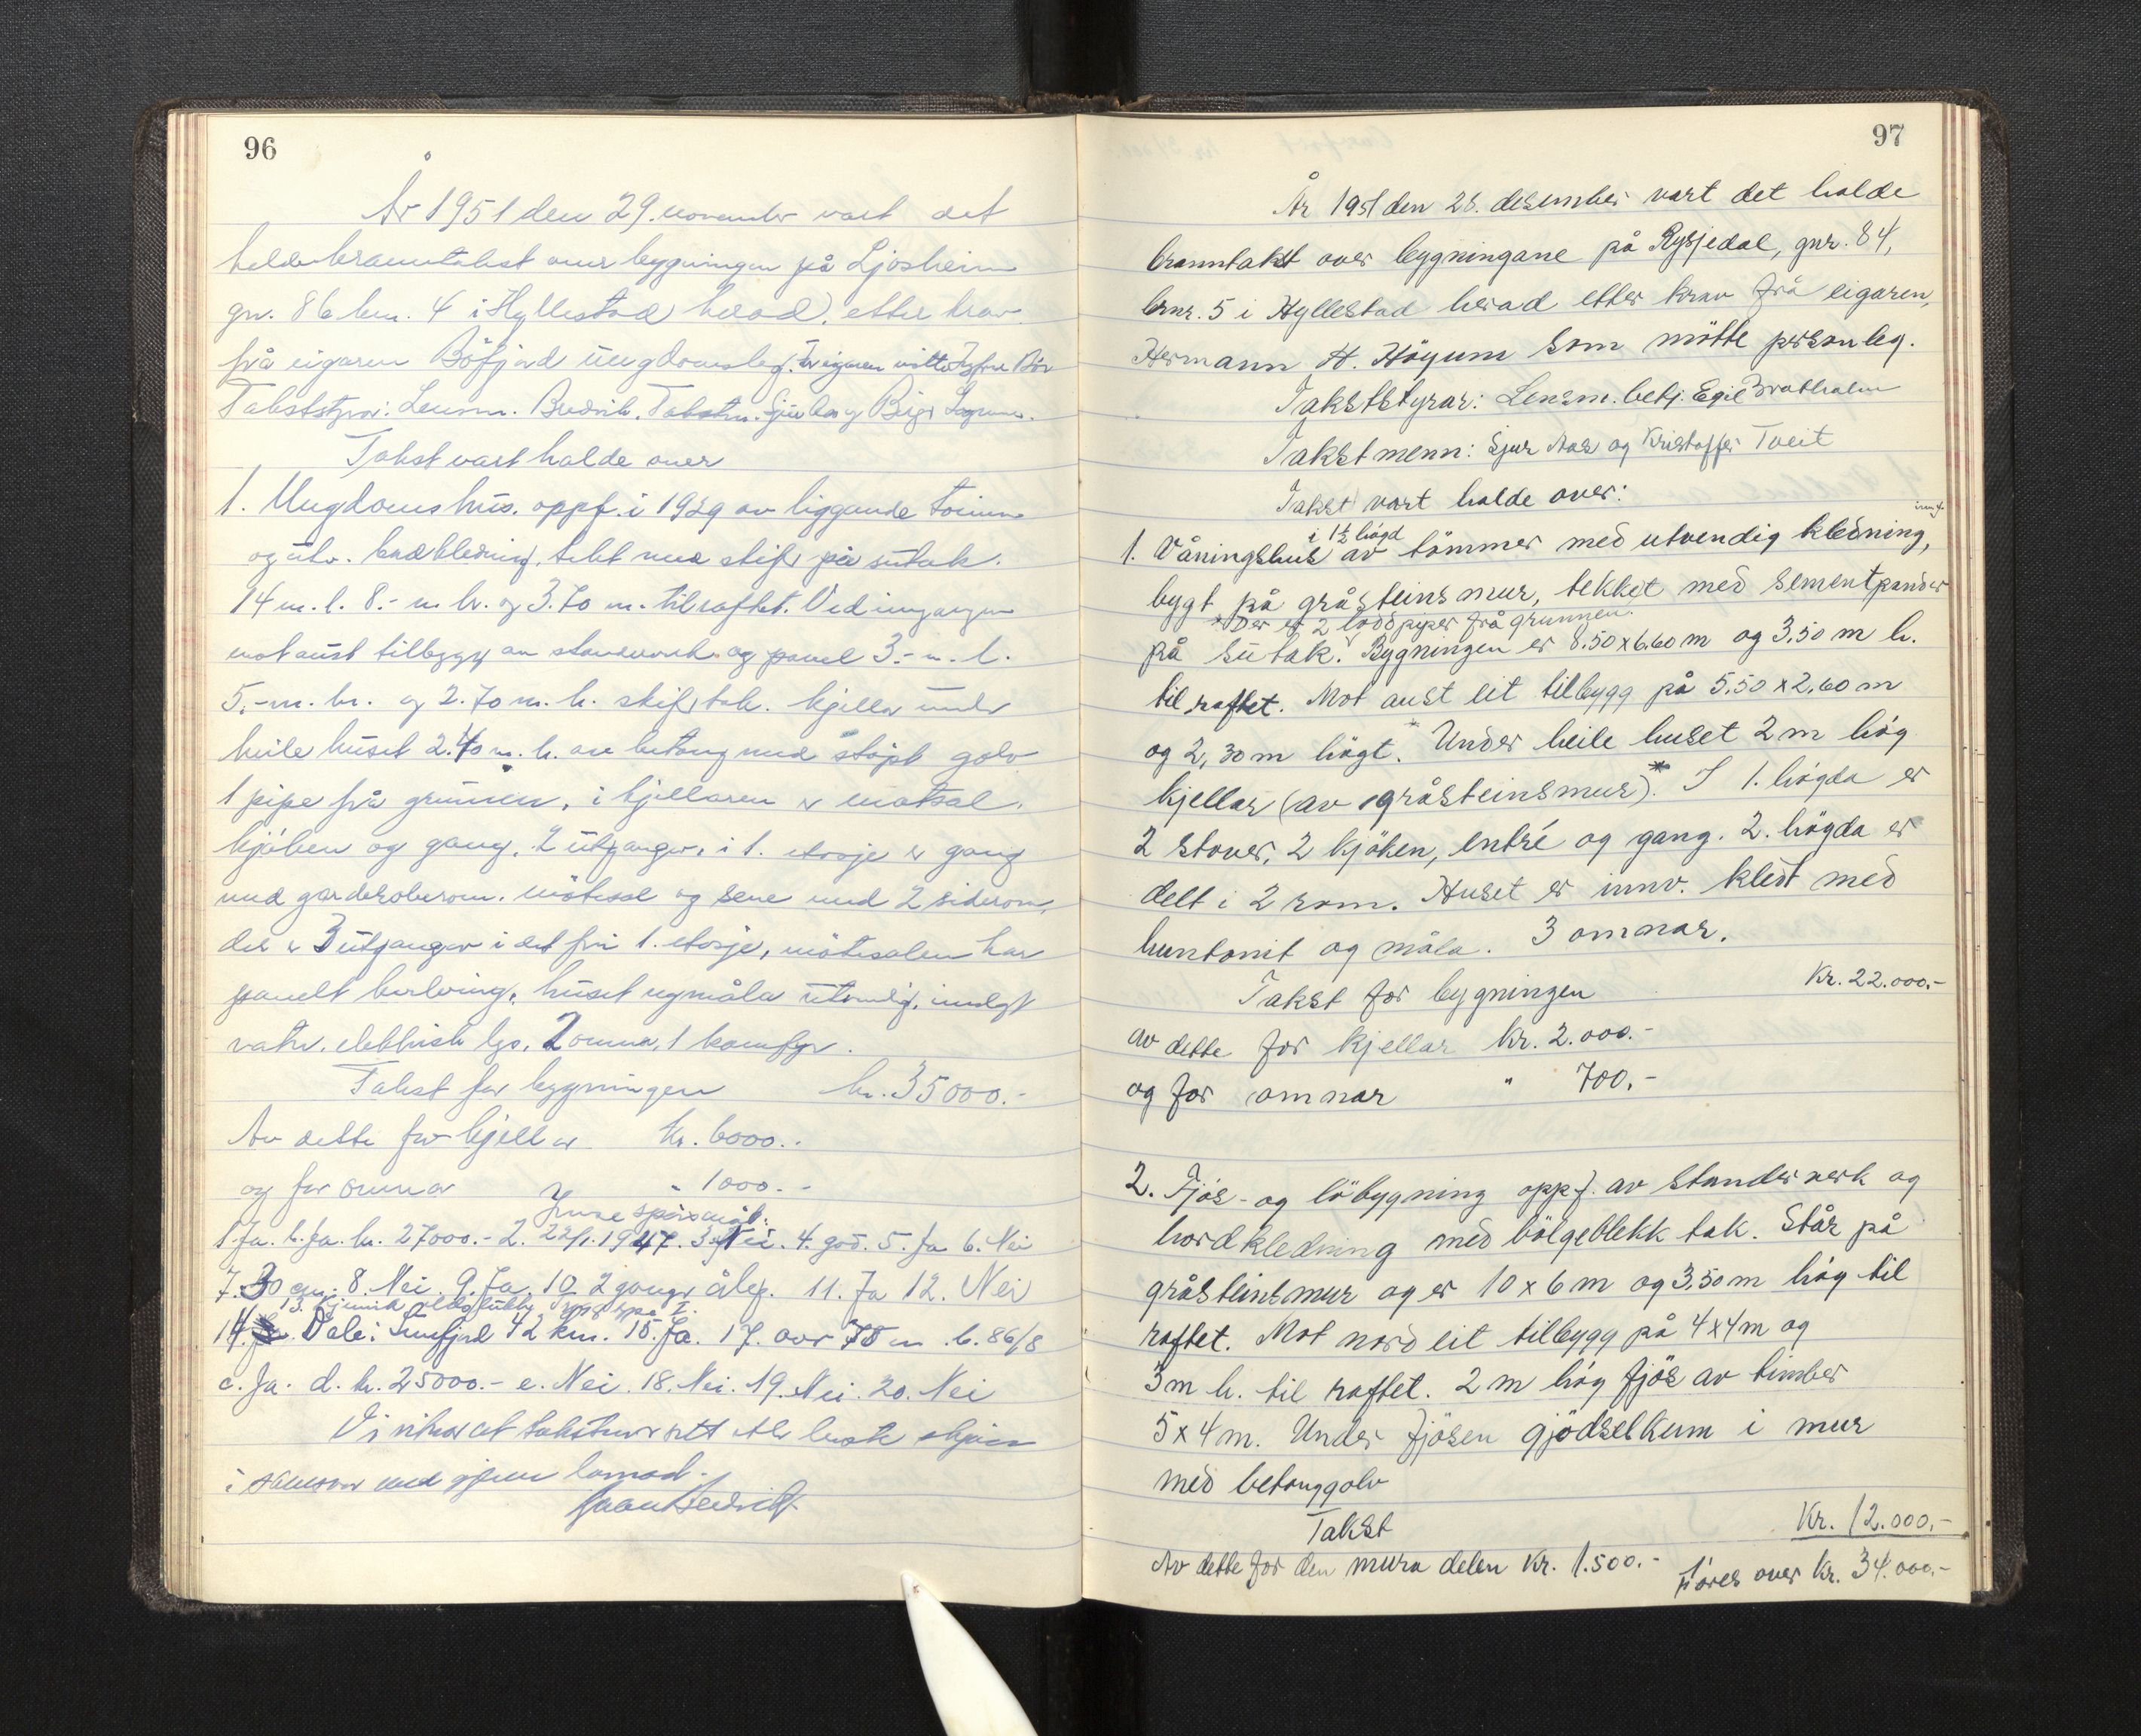 96
År 1951 den 29. november vart det
halde branntakst over bygningen på Ljosheim
gnr. 86 bnr. 4 i Hyllestad herad, etter krav
frå eigaren Böfjord ungdomslag. For eigaren møtte
Takststyrar: Lensm. Bredvik. Takstm.
Takst vart halde over
1. Ungdomshus. oppf. i 1929 av liggande tømmer
og utv. bordkledning, tekt med skifer på sutak.
14 m. l. 8.- m br. og 3.70 m. til raftet. Ved inngangen
mot aust tilbygg av standverk og panel 3.- m. l.
5.- m. br. og 2.70 m. h. skifertak. kjellar under
heile huset 2.40 m. h. av betong med støpt golv
1 pipe frå grunnen, i kjellaren er matsal,
kjøken og gang. 2 utganger. i 1. etasje er gang
med garderoberom. møtesal og sene med 2 siderom,
det er 3 utganger i det fri 1. etasje, møtesalen har
panelt kvelving, huset er måla utvendig, innlagt
vatn, elektrisk lys, 2 omnar, 1 komfyr.
Takst for bygningen kr. 35000.-
Av dette for kjellar kr. 6000.-
og for omnar " 1000.-
spørsmål:
1. Ja. b. Ja. kr. 27000.- 2. 22/1. 1947. 3. Nei. 4. god. 5. Ja 6. Nei
7. 30 cm. 8. Nei. 9. Ja. 10. 2 gonger årleg. 11. Ja 12. Nei
13.
14. Dale i Sunnfjord 42 km. 15. Ja. 17. over 70 m. b. 86/8
c. Ja. d. kr. 25000.- e. Nei. 18. Nei. 19. Nei. 20. Nei
Vi vitnar at taksten er sett etter beste skjøn
i samsvar med gjevne lovnad.
97
År 1951 den 28. desember vart det halde
branntakst over bygningane på Rysjedal, gnr. 84,
bnr. 5 i Hyllestad herad etter krav frå eigaren,
Hermann H. Höyum som mötte personleg.
Takststyrar: Lensm. betj. Egil Bratholm
Takstmenn: Sjur Aas og Kristoffer Tveit
Takst vart halde over:
i 1½ högd
1. Våningshus av tömmer med utvendig kledning,
bygt på gråsteinsmur, tekket med sementpanner
* Der er 2 lodd piper frå grunnen.
på sutak. Bygningen er 8.50 x 6.60 m og 3,50 m h.
til raftet. Mot aust eit tilbygg på 5,50 x 2,60 m
og 2,30 m högt. Under heile huset 2 m hög
kjellar (av gråsteinsmur).* I 1. högda er
2 stover, 2 kjöken, entré og gang. 2. högda er
delt i 2 rom. Huset er innv. kledt med
huntonit og måla. 3 omnar.
Takst for bygningen Kr. 22.000,-
av dette for kjellar kr. 2.000.-
og for omnar " 700,-
2. Fjös- og löbygning oppf. av standerverk og
bordkledning med bölgeblekk tak. Står på
gråsteinsmur og er 10 x 6 m og 3,50 m hög til
raftet. Mot nord eit tilbygg på 4x4 m og
3 m h. til raftet. 2 m hög fjös av timber
5 x 4 m. Under fjösen gjödselkum i mur
med betonggolv
Takst Kr. 12.000,-
Av dette for den mura delen kr. 1.500.- Föres over kr. 34.000,-